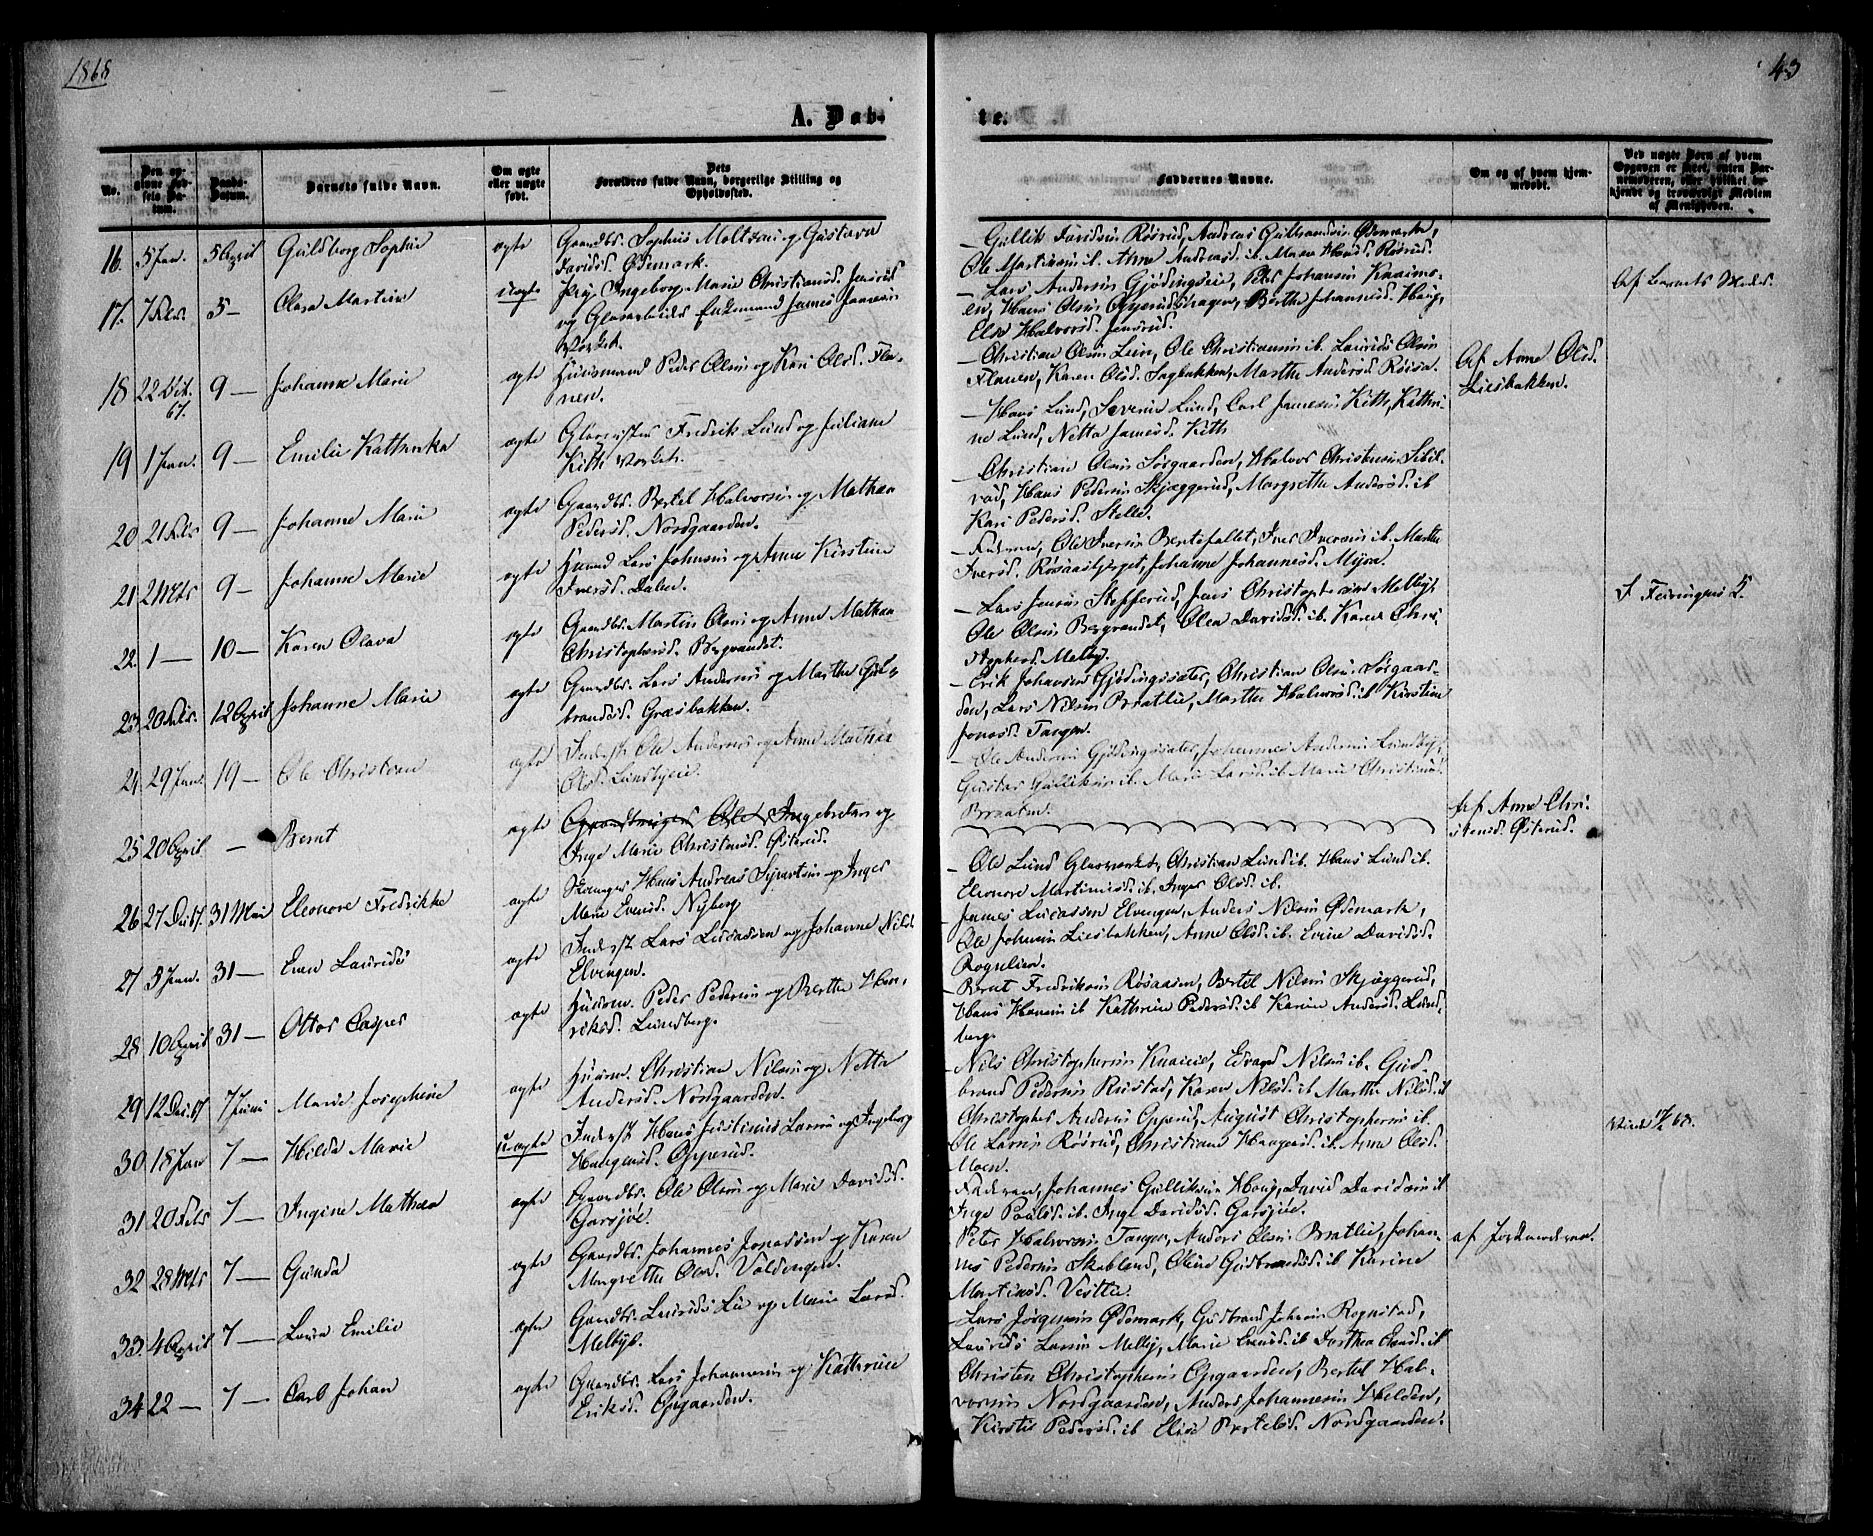 1868
43
A. Døb-
te.
No.
Den op-
givne Fød-
sels Da-
tum.
Daabs-
Datum.
Barnets fulde Navn.
Om ægte
eller uægte
født.
Dets
Forældres fulde Navn, borgerlige Stilling og
Opholdssted.
Faddernes Navne.
Om og af hvem hjem-
medøbt.
Ved uægte Børn af hvem
Opgaven er sket, enten Bar-
nemoderen, eller hvilket be-
kjendt og troværdigt Medlem
af Menigheden.
16. 5 Jan. 5 April Guldborg Sophie ægte
Gaardbr. Sophus Meltzen og Gustava
Davidsd. Ødemark.
Gullik Davidsen Røsrud, Andreas Gulbrandsen Ødemark,
Ole Martinsen ib. Anne Andreasd. ib. Maren Hansd. Røsrud.
17. 7 Febr. 5 — Olava Martine uægte
Pige Ingeborg Marie Christiansd. Jensrud
og Glasarbeider Enkemand James Jamesen
Værket.
Lars Andersen Gjødingseie, Peder Johansen Knaims-
eie, Hans Olsen Opperudshagen, Berthe Johannesd. Haug,
Else Halvorsd. Jensrud.
18 22 Oct. 67. 9 — Johanne Marie ægte
Huusmand Peder Olsen og Kari Olsd. Fla-
nen.
Christian Olsen Leir, Ole Christiansen ib. Laurids Olsen
Flanen, Karen Olsd. Sagbakken, Marthe Andersd. Røisa.
Af Anne Olsd.
Liesbakken.
19 1 Jan. 9 — Emilie Kathinka ægte
Glaspuster Fredrik Lund og Juliane
Kith Værket.
Hans Lund, Severin Lund, Carl Jamesen Kith, Kathri-
ne Lund, Netta Jamesd. Kith
20 21 Febr 9 — Johanne Marie ægte
Gaardbr. Bertel Halvorsen og Mathea
Pedersd. Nordgaarden.
Christian Olsen Sørgaarden, Halvor Christensen Sibil-
rud, Hans Pedersen Skjæggerud, Margrethe Andersd. ib
Kari Pedersd. Stelle.
21 2 Mrts 9 — Johanne Marie ægte
Huusmd Lars Johnsen og Anne Kirstine
Iversd. Dalen.
Faderen, Ole Iversen Bentefallet, Iver Iversen ib. Marthe
Iversd. Røsaasbjerget, Johanne Johannesd. Mijon.
22. 1 — 10 — Karen Olava ægte
Gaardbr. Martin Olsen og Anne Mathea
Christophersd. Bergvandet.
Lars Jensen Stefferud, Jens Christophersen Melby,
Ole Olsen Bergvandet, Olea Davidsd. ib. Karen Chri-
stophersd. Melby.
23 20 Febr. 12 April Johanne Marie ægte
Gaardbr. Lars Andersen og Marthe Gul-
brandsd. Græsbakken.
Erik Johansen Gjødingssæter, Christian Olsen Sørgaar-
den, Lars Nilsen Bratlie, Marthe Halvorsd. ib Kirstine
Jonasd. Tangen.
24 29 Jan. 19 — Ole Christian ægte
Inderst Ole Andersen og Anne Mathea
Olsd. Lundbyeie.
Ole Andersen Gjødingssæter, Johannes Andersen Lundby,
Gustav Gulliksen ib. Marie Larsd. ib Marie Christiansd.
Braaten.
25 20 April — Bernt ægte
Ole Ingebretsen og
Inge Marie Christensd. Østerud.
Af Anne Chri-
stensd. Østerud.
26 27 Dec 67. 31 Mai Eleonore Fredrikke ægte
Hans Andreas Syvertsen og Inger
Marie Evensd. Nyberg
Ole Lund Glasværket, Christian Lund ib. Hans Lund ib.
Eleonore Martinsd. ib. Inger Olsd. ib.
27 5 Jan. 31 — Even Lauridts ægte
Inderst Lars Lucassen og Johanne Nilsd.
Elvengen.
James Lucassen Elvengen, Anders Nilsen Ødemark,
Ole Johnsen Liesbakken, Anne Olsd. ib. Evine Davidsd.
Rognlien.
28 10 April 31 — Ottar Casper ægte
Huusm. Peder Pedersen og Berthe Hen-
riksd. Lundberg.
Bernt Fredriksen Røsaasen, Bertel Nilsen Skjæggerud,
Hans Hansen ib Kathrine Pedersd. ib Karine Andersd. Lund-
berg.
29 12 Dec. 67 7 Juni Marie Josephine ægte
Huusm. Christian Nilsen og Netta
Andersd. Nordgaarden.
Nils Christophersen Knaieie, Edvard Nilsen ib. Gud-
brand Pedersen Rustad, Karen Nilsd. ib Marthe Nilsd. ib
30 18 Jan 7 — Hilda Marie uægte
Inderst Hans Justinus Larsen og Ingeborg
Haagensd. Opperud.
Christopher Andersen Opperud, August Christophersen ib.
Ole Larsen Røsrud, Christiane Haagensd. ib. Anne Olsd.
Moen.
31 20 Febr 7 — Ingine Mathea ægte
Gaardbr. Ole Olsen og Marie Davidsd.
Garsjøe.
Faderen, Johannes Gulliksen Haug, David Davidsen ib
Inge Paalsd. ib. Inge Davidsd. Garsjøe.
32 28 Mrts 7 — Gunda ægte
Gaardbr. Johannes Jonassen og Karen
Margrethe Olsd. Voldengen.
Peter Halvorsen Tangen, Anders Olsen Bratlie, Johan-
nes Pedersen Skabland, Oline Gudbrandsd. ib Karine
Martinsd. Vestlie.
af Jordmoderen.
33. 4 April 7 — Laura Emilie ægte
Gaardbr. Laurids Lie og Marie Larsd.
Melby.
Lars Jørgensen Ødemark, Gulbrand Johnsen Rognstad,
Laurids Larsen Melby, Marie Larsd. ib Dorthea Evensd. ib
34 22 — 7 — Carl Johan ægte
Gaardbr. Lars Johannesen og Kathrine
Eriksd. Opgaarden.
Christen Christophersen Opgaarden, Bertel Hal-
vorsen Nordgaarden, Anders Johannesen Helden,
Kirstie Pedersd. ib Elise Bertelsd. Nordgaarden.